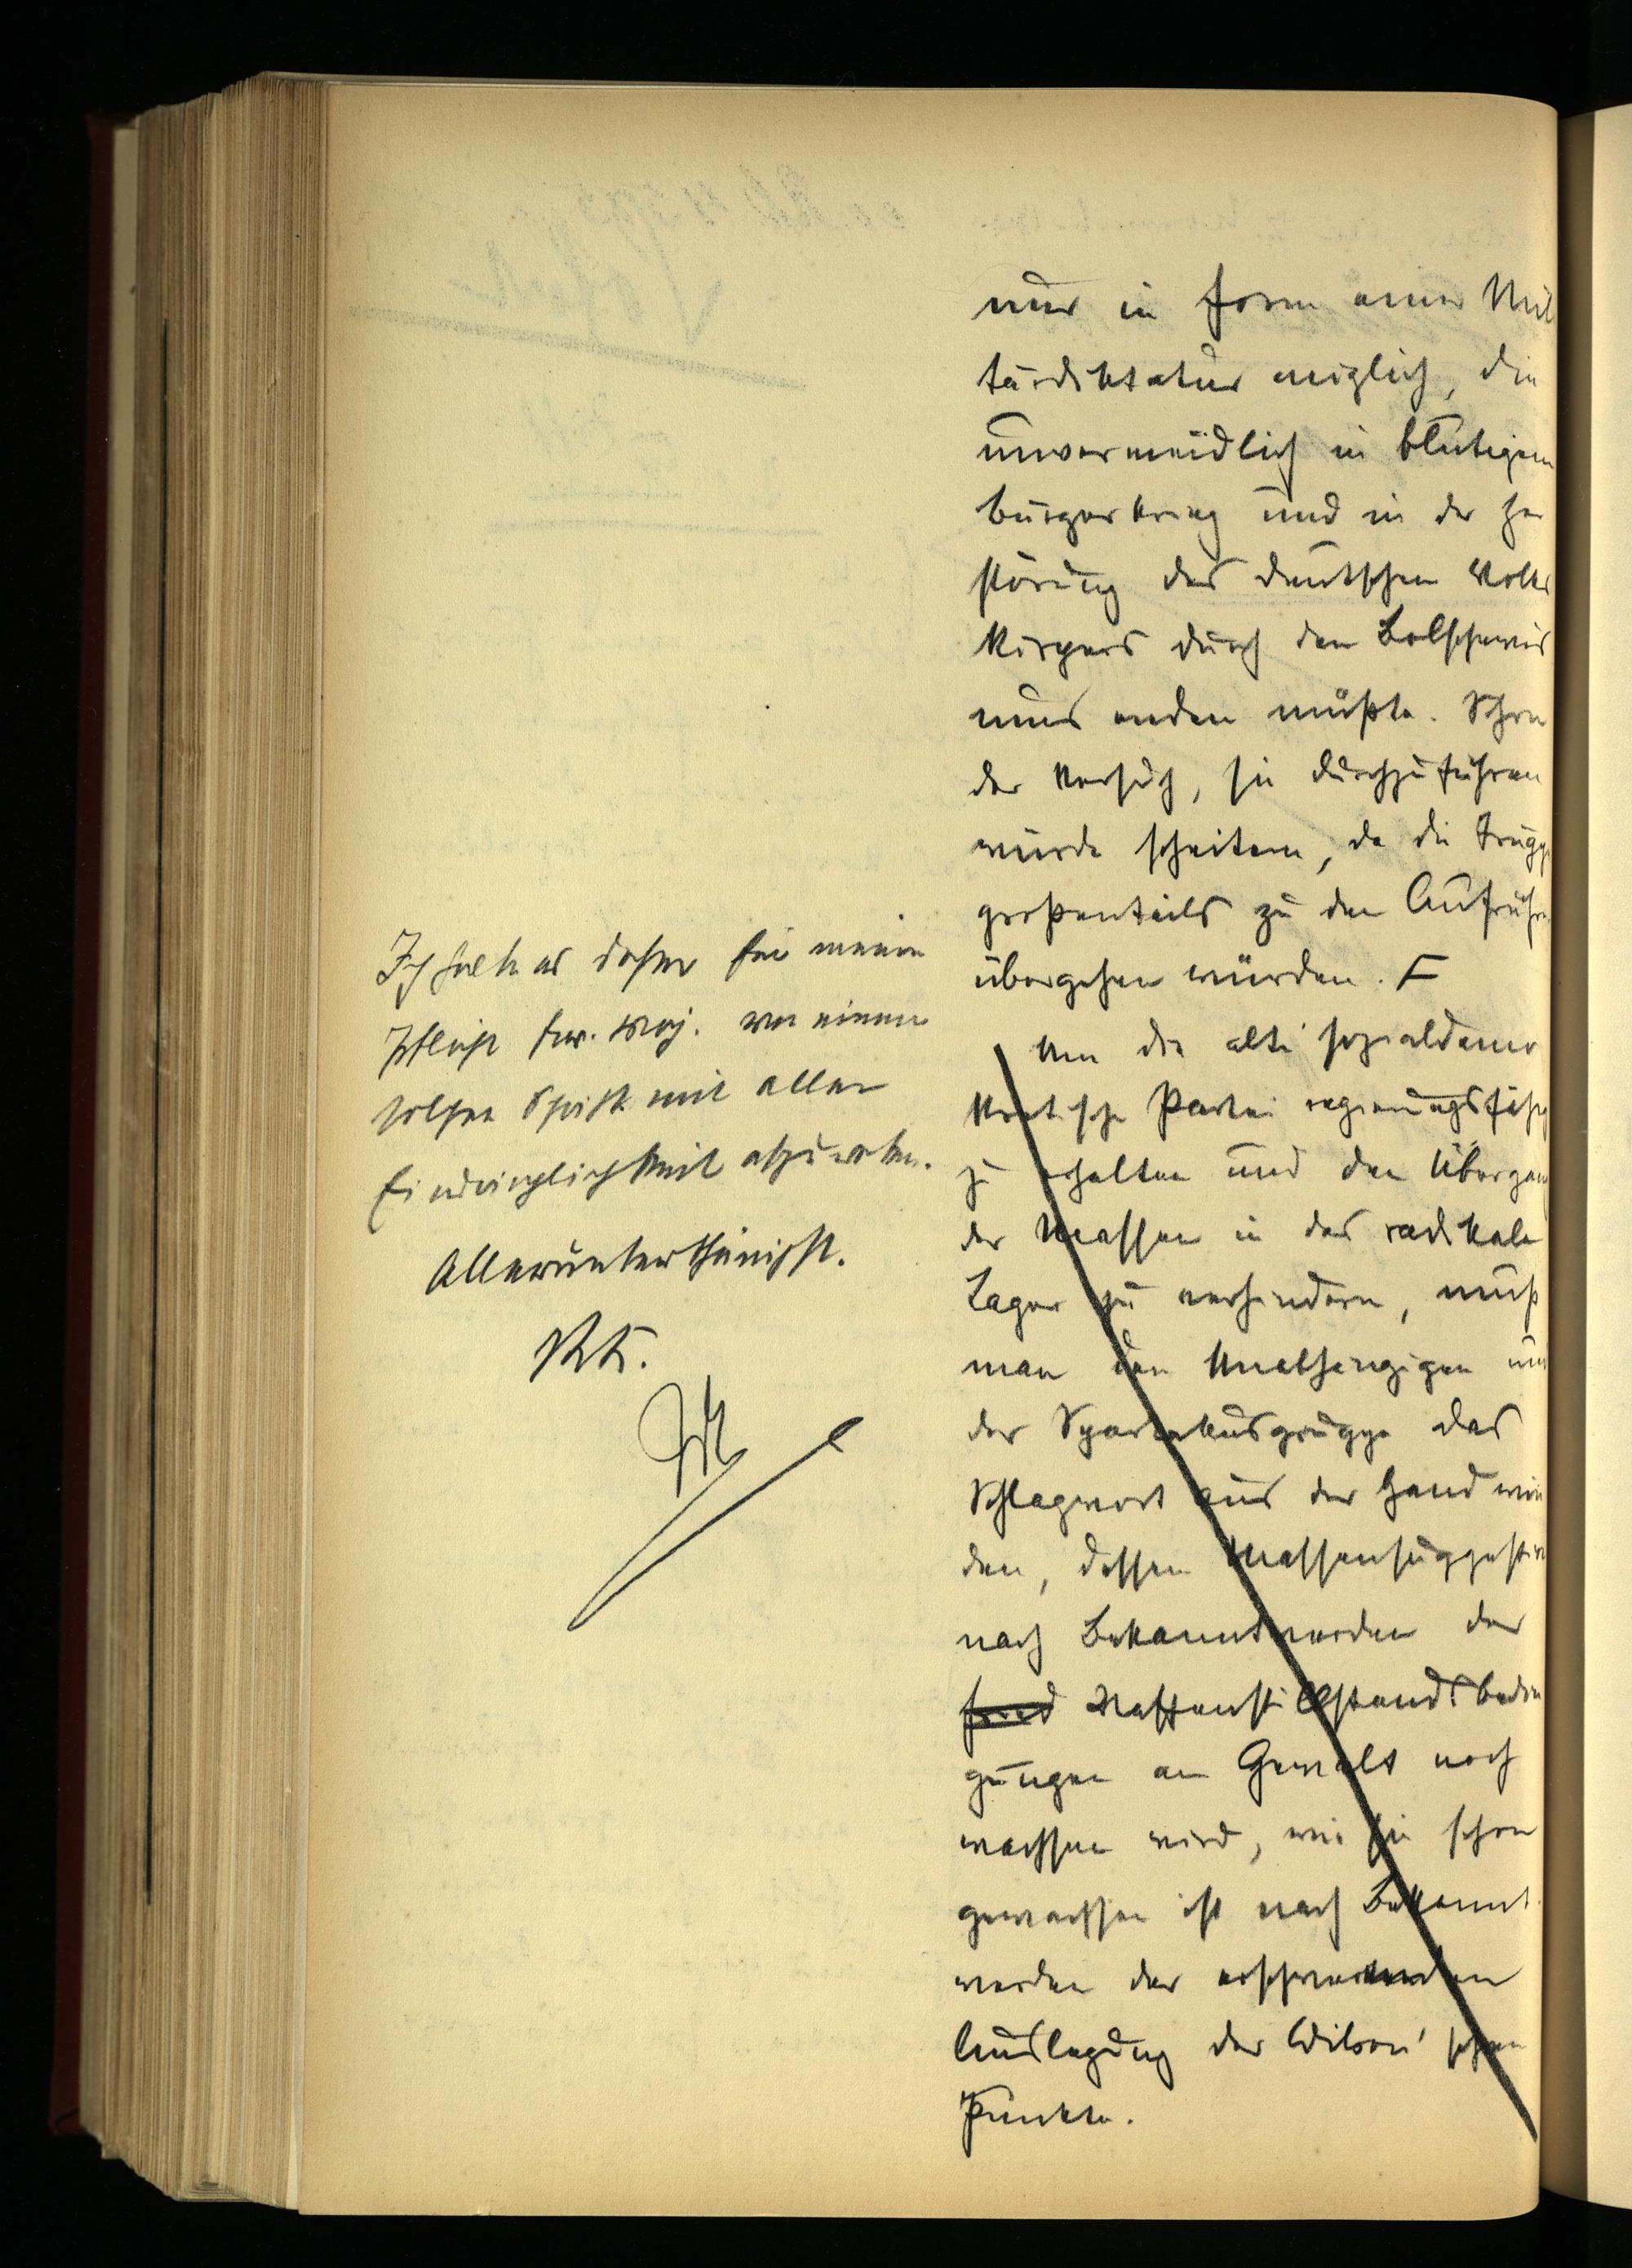 nur in Form einer Mil
tärdiktatur möglich, die
unvermeidlich in blutigem
Bürgerkrieg und in der Zer
störung des deutschen Volks
körpers durch den Bolschewis
mus enden müßte. Schon
der Versuch, sie durchzuführen
würde scheitern, da die Trupp
großenteils zu den Aufrühr
übergehen würden. F
Um die alte sozialdemo
kratische Partei regierungsfähig
zu erhalten und den Übergang
der Massen in das radikale
Lager zu verhindern, muß
man den Unabhängigen und
der Spartakusgruppe das
Schlagwort aus der Hand win
den, dessen Massensuggestion
nach Bekanntwerden der
fried Waffenstillstandsbedin
gungen an Gewalt noch
wachsen wird, wie sie schon
gewachsen ist nach Bekannt
werden der erschwerenden
Auslegung der Wilson'schen
Punkte.
Ich halte es daher für meine
Pflicht Ew. Maj. vor einem
solchen Schritt mit aller
Eindringlichkeit
Alleruntertänigst.
RK.